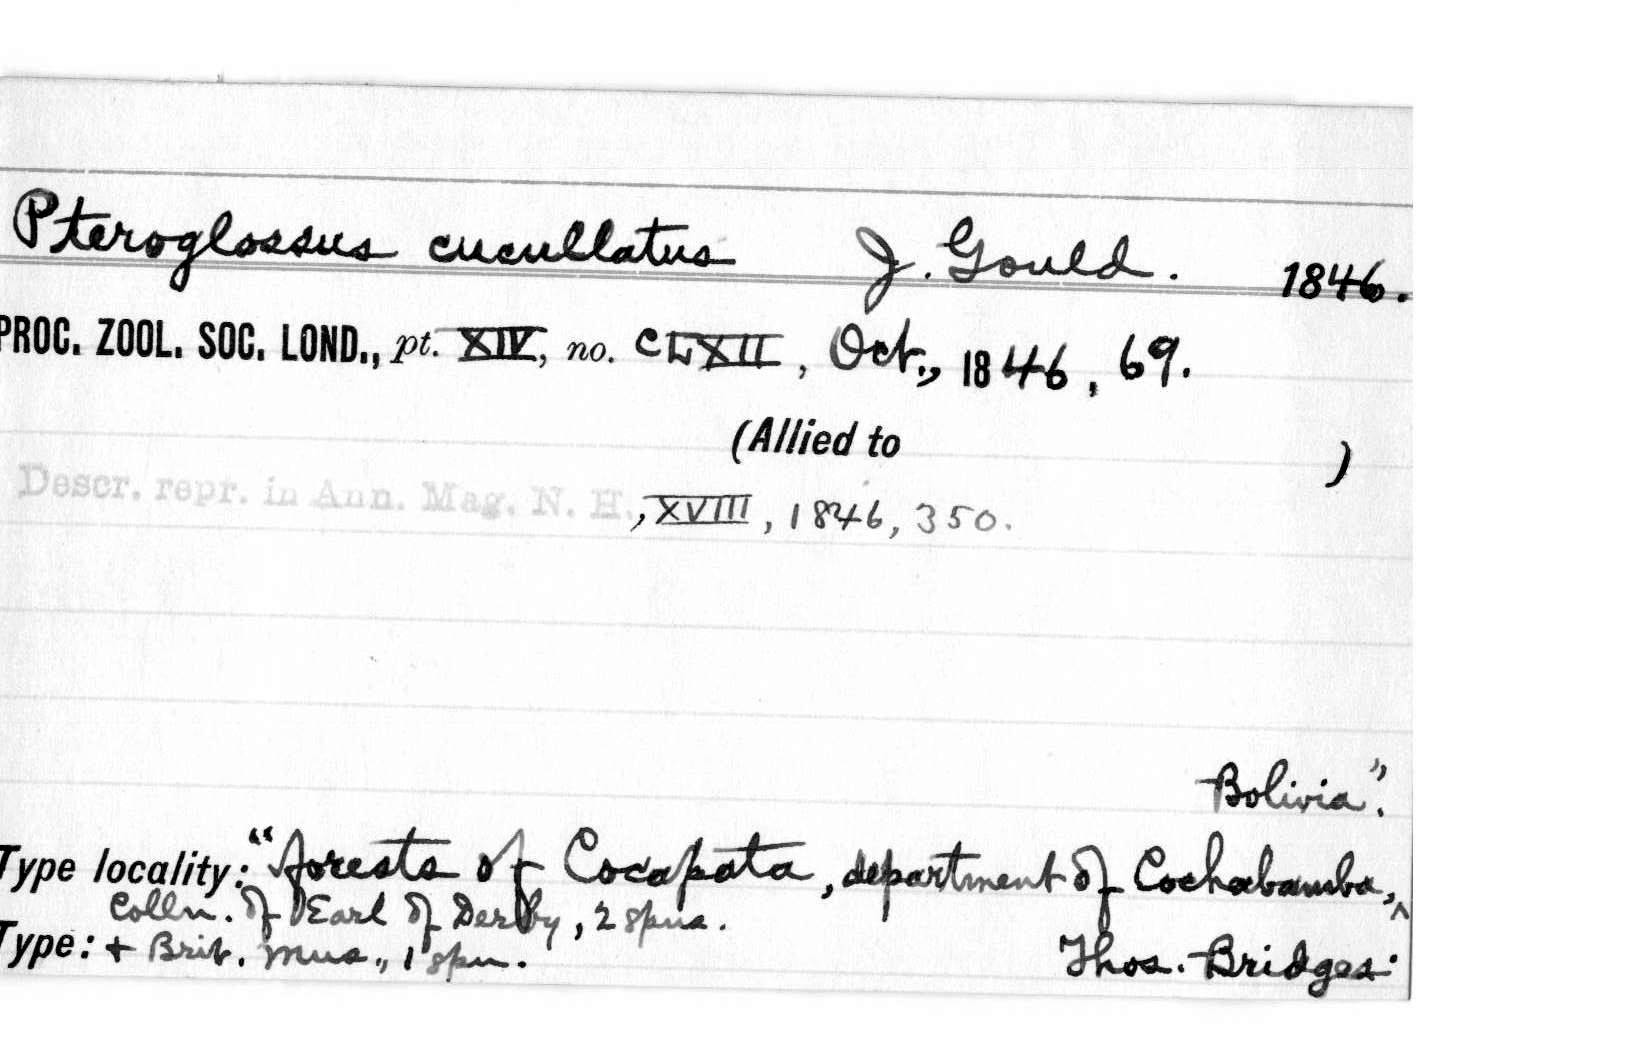 Pteroglossus cucullatus J. Gould. 1846.
PROC. ZOOL. SOC. LOND., pt. XIV, no. CLXII, Oct., 1846, 69.
(Allied to )
Descr. repr. in Ann. Mag. N. H., XVIII, 1846, 350.
Bolivia".
Type locality: "forests of Cocapata, department of Cochabamba, ^
Colln. of Earl of Derby, 2 spns.
Type: + Brit. Mus., 1 spn. Thos. Bridges.